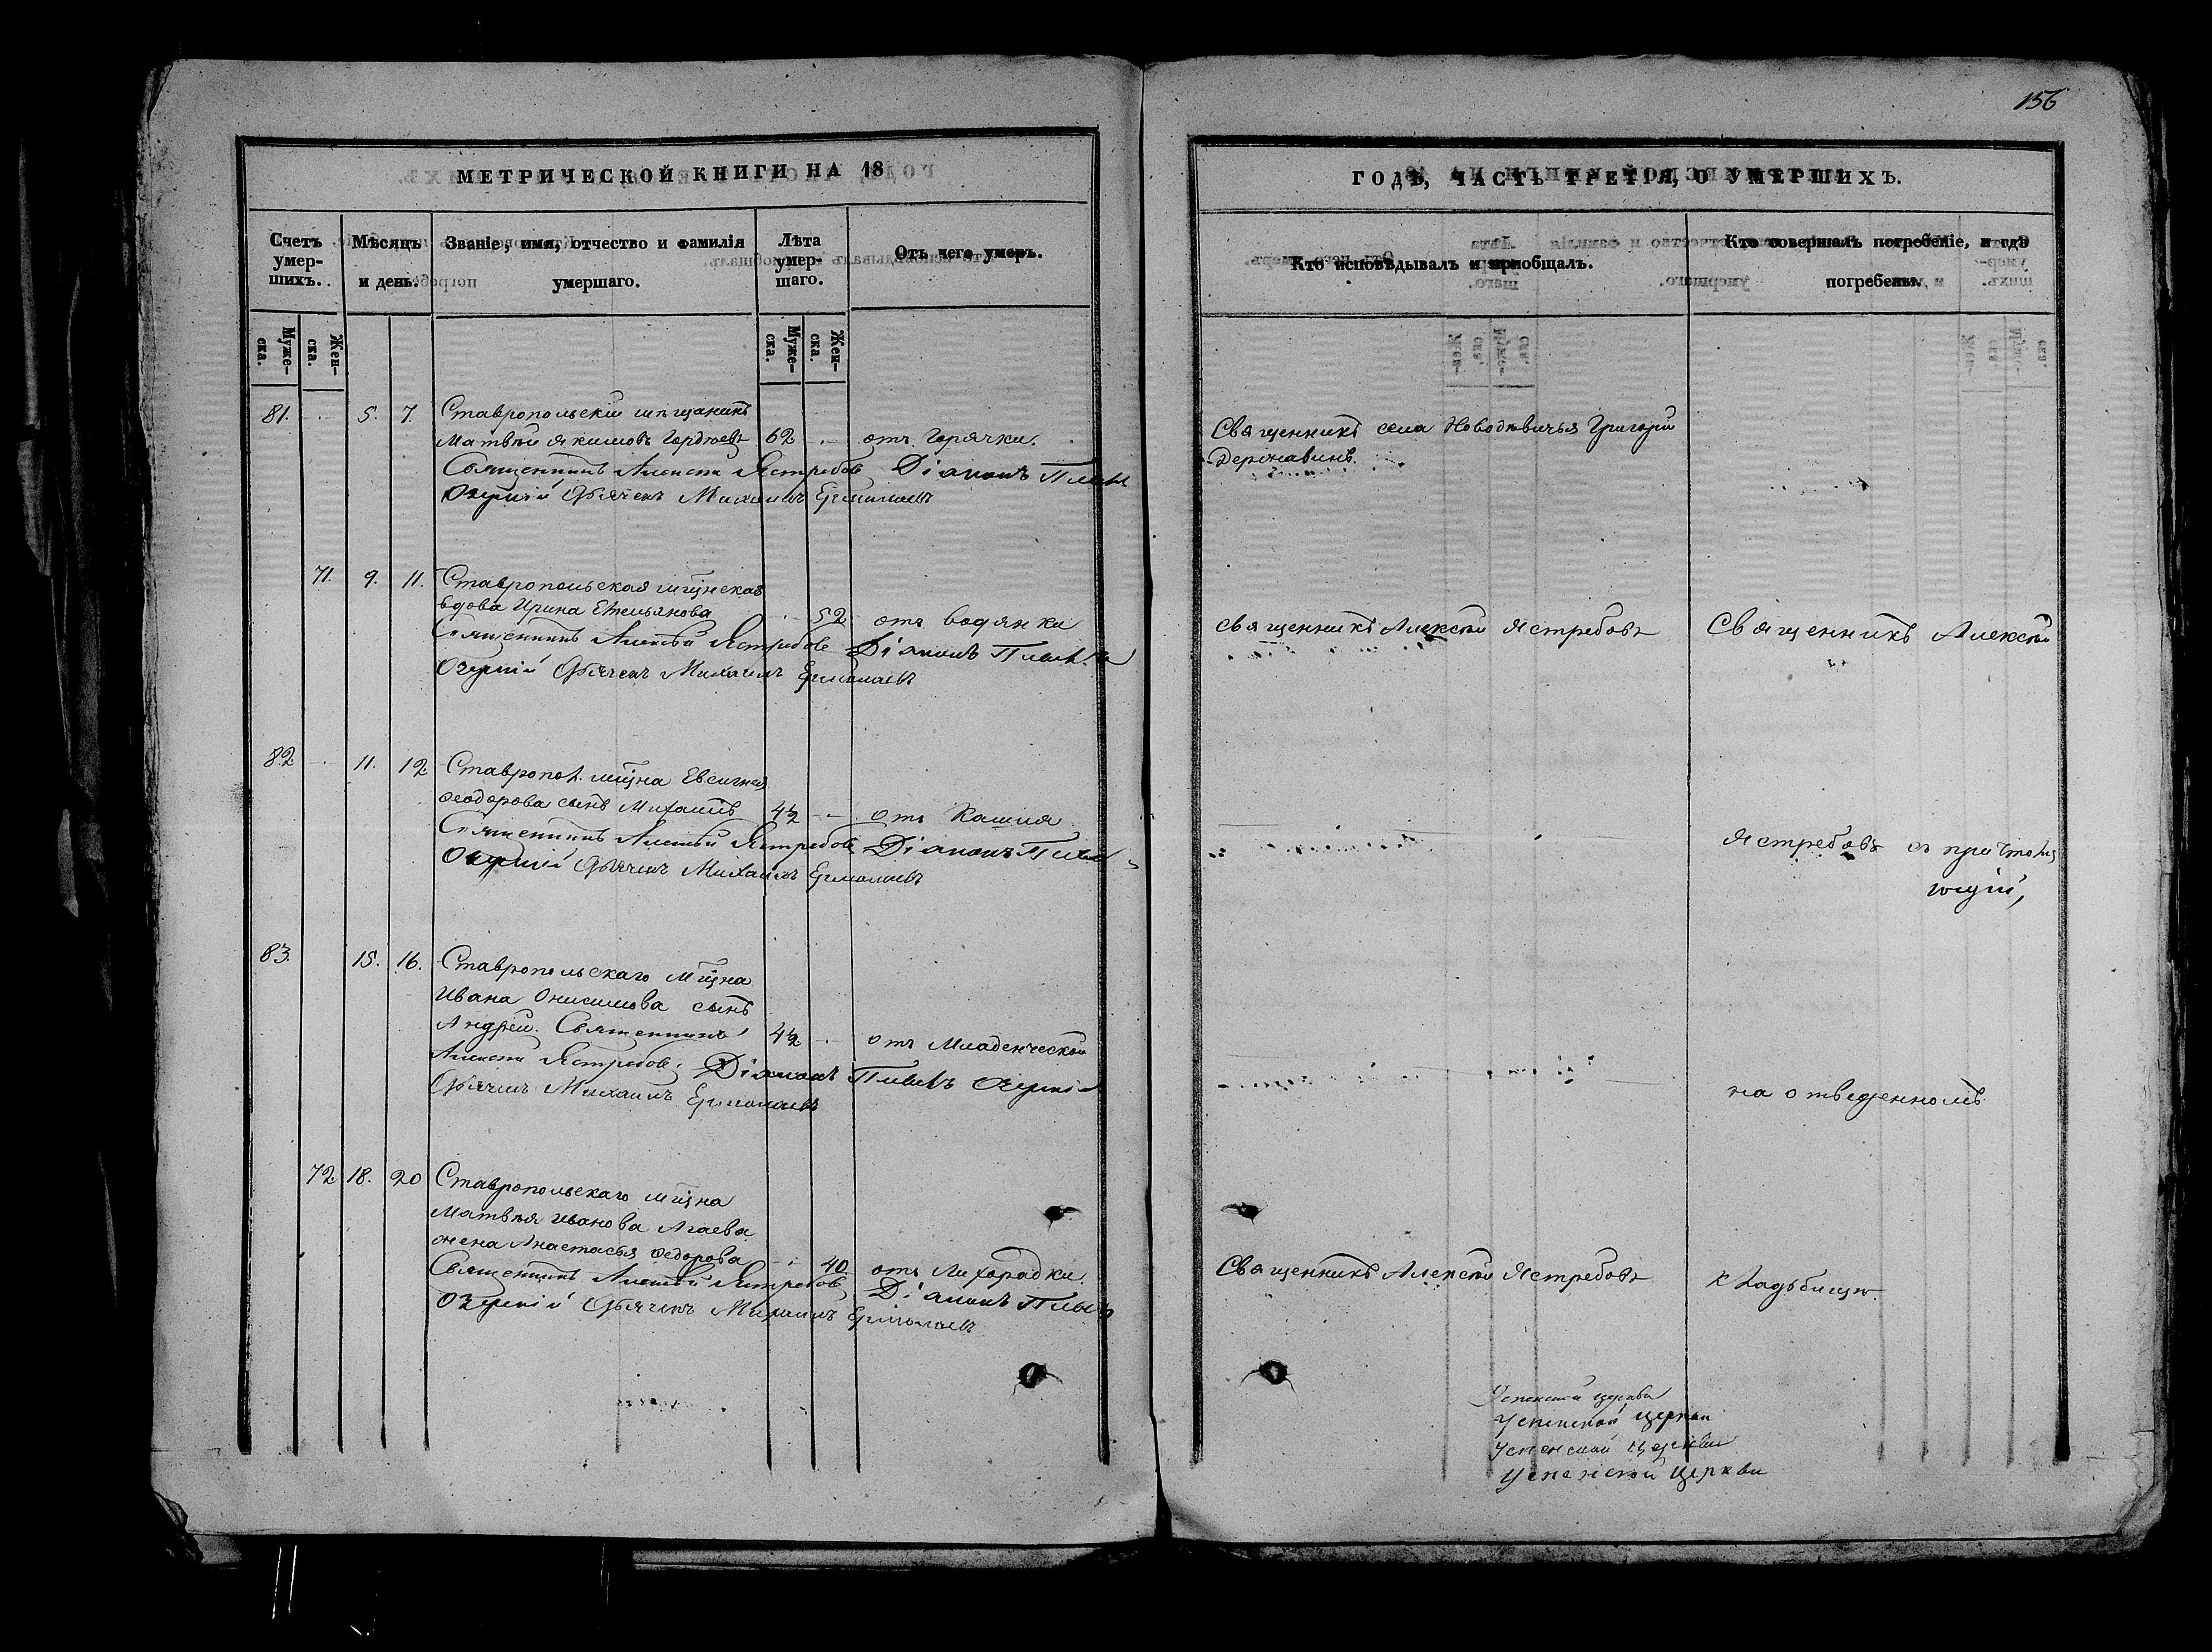 156
МЕТРИЧЕСКОЙ КНИГИ НА 18
Счетъ умер-шихъ.
Мѣсяцъ и день.
Званіе, имя, отчество и фамилія умершаго.
Лѣта умер-шаго.
Отъ чего умеръ.
Муже-ска.
Жен-ска.
Муже-ска.
Жен-ска.
81. 5. 7. Ставропольскій мѣщанинъ
Матвѣй Якимовъ Гордѣевъ 62 отъ горячки.
Священникъ Алексѣй Ястребовъ Діаконъ
Озеркій Дьячекъ Михаилъ Ермолаевъ
71. 9. 11. Ставропольская мѣщнская
вдова Ирина Емельянова 52 отъ водянки
Священникъ Алексѣй Ястребовъ Діаконъ
Озеркій Дьячекъ Михаилъ Ермолаевъ
82 11. 12 Ставропол. мѣщна Евсигнея
Ѳеодорова сынъ Михаилъ 4½ отъ Кашля
Священникъ Алексѣй Ястребовъ Діаконъ
Озеркій Дьячекъ Михаилъ Ермолаевъ
83. 15. 16. Ставропольскаго мѣщна
Ивана Онисимова сынъ
Андрей. Священникъ 4½ отъ Младенческой
Алексѣй Ястребовъ. Діаконъ
Дьячекъ Михаилъ Ермолаевъ
72 18. 20 Ставропольскаго мѣщна
Матвѣя Иванова Агаева
жена Анастасья Ѳедорова 40 отъ Лихорадки.
Священникъ Алексѣй Ястребовъ Діаконъ
Озеркій Дьячекъ Михаилъ Ермолаевъ
ГОДЪ, ЧАСТЬ ТРЕТІЯ, О УМЕРШИХЪ.
Кто исповѣдывалъ и пріобщалъ.
Кто совершалъ погребеніе, и гдѣ погребены.
Священникъ села Новодѣвичья Григорій
Державинъ.
Священникъ Алексѣй Ястребовъ
Священникъ Алексѣй
Ястребовъ съ причтомъ
на отведенномъ
Священникъ Алексѣй Ястребовъ
кладьбищѣ.
Успенской церкви
Успенской церкви
Успенской Церкви
Успенской Церкви